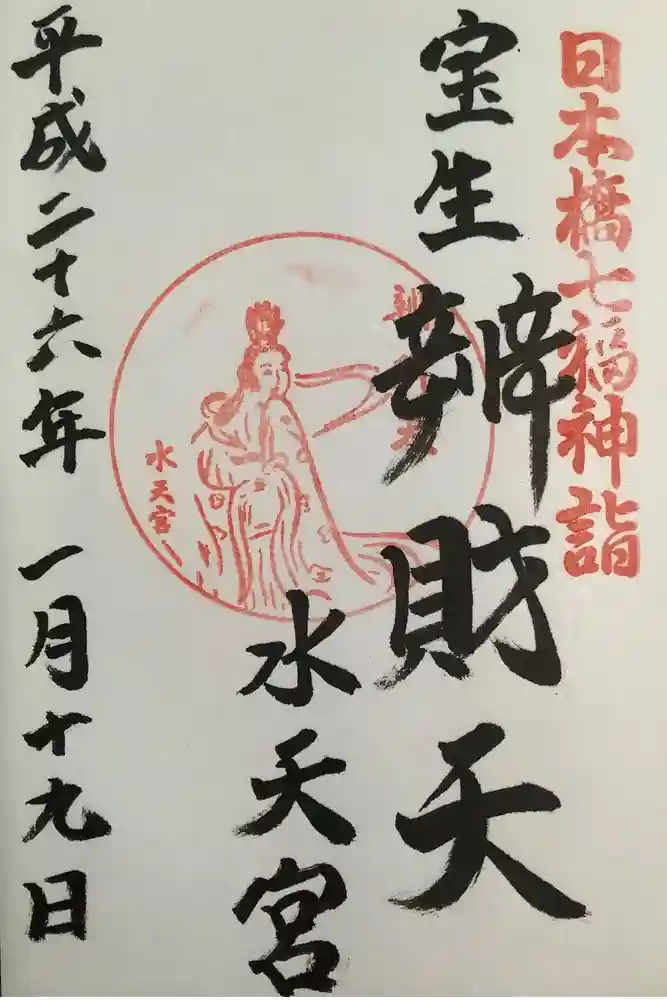 日本橋七福神詣
宝生
辨財天
水天宮
水天宮
平成二十六年 一月十九日